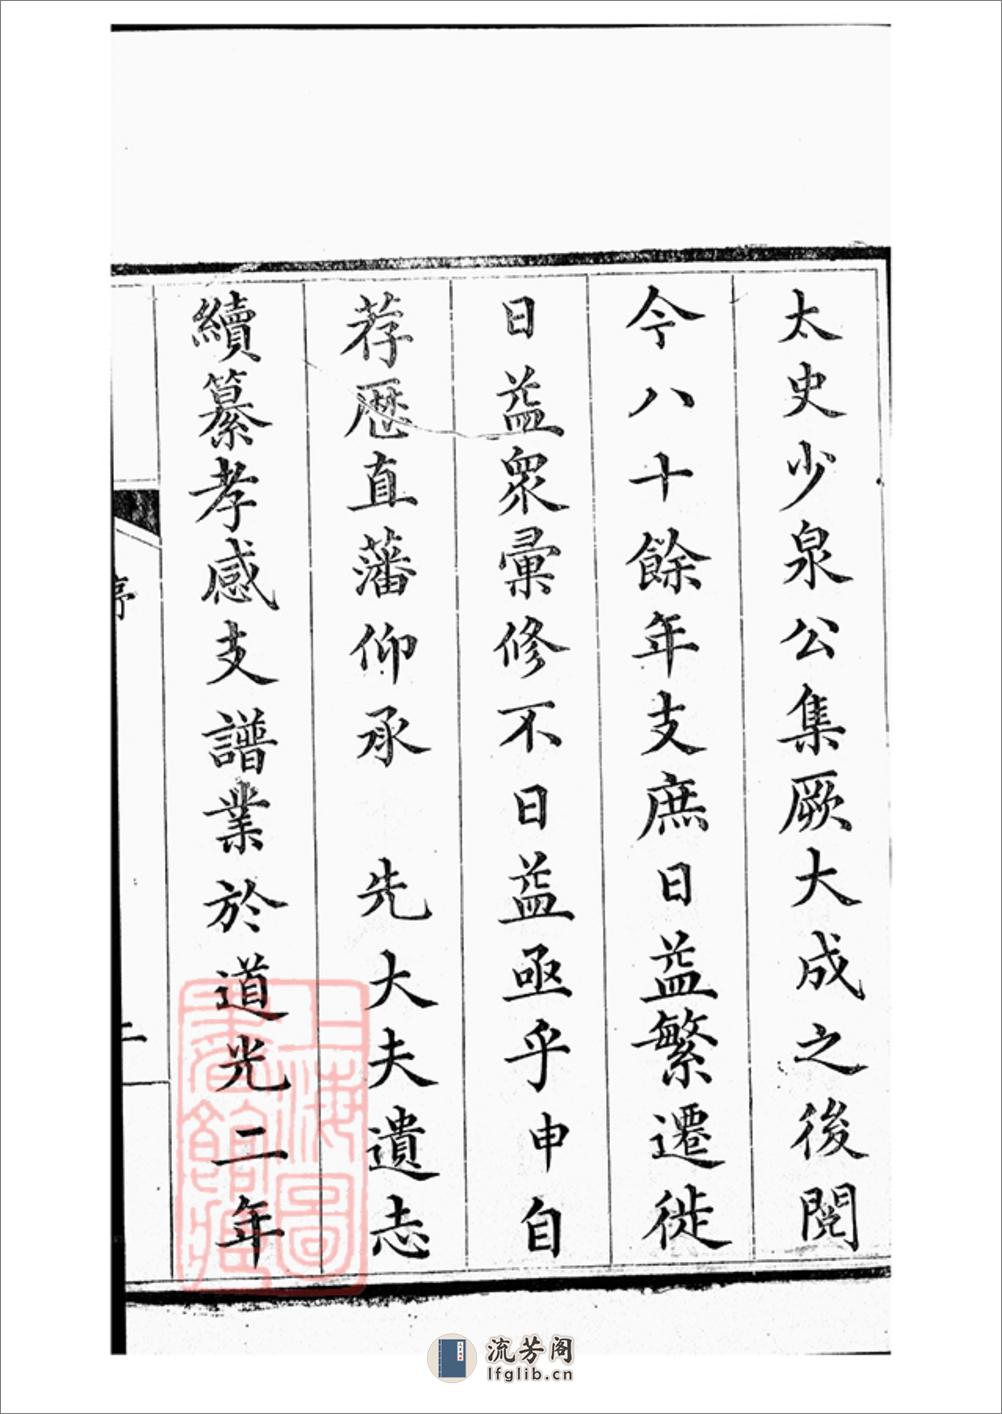 太史少泉公集厥大成之後閱
今八十餘年支庶日益繁遷徙
日益衆彙修不日益亟乎申自
荐歴直藩仰承 先大夫遺志
續纂孝感支譜業於道光二年
序
二
上海圖書館藏
流芳阁
lfglib.cn